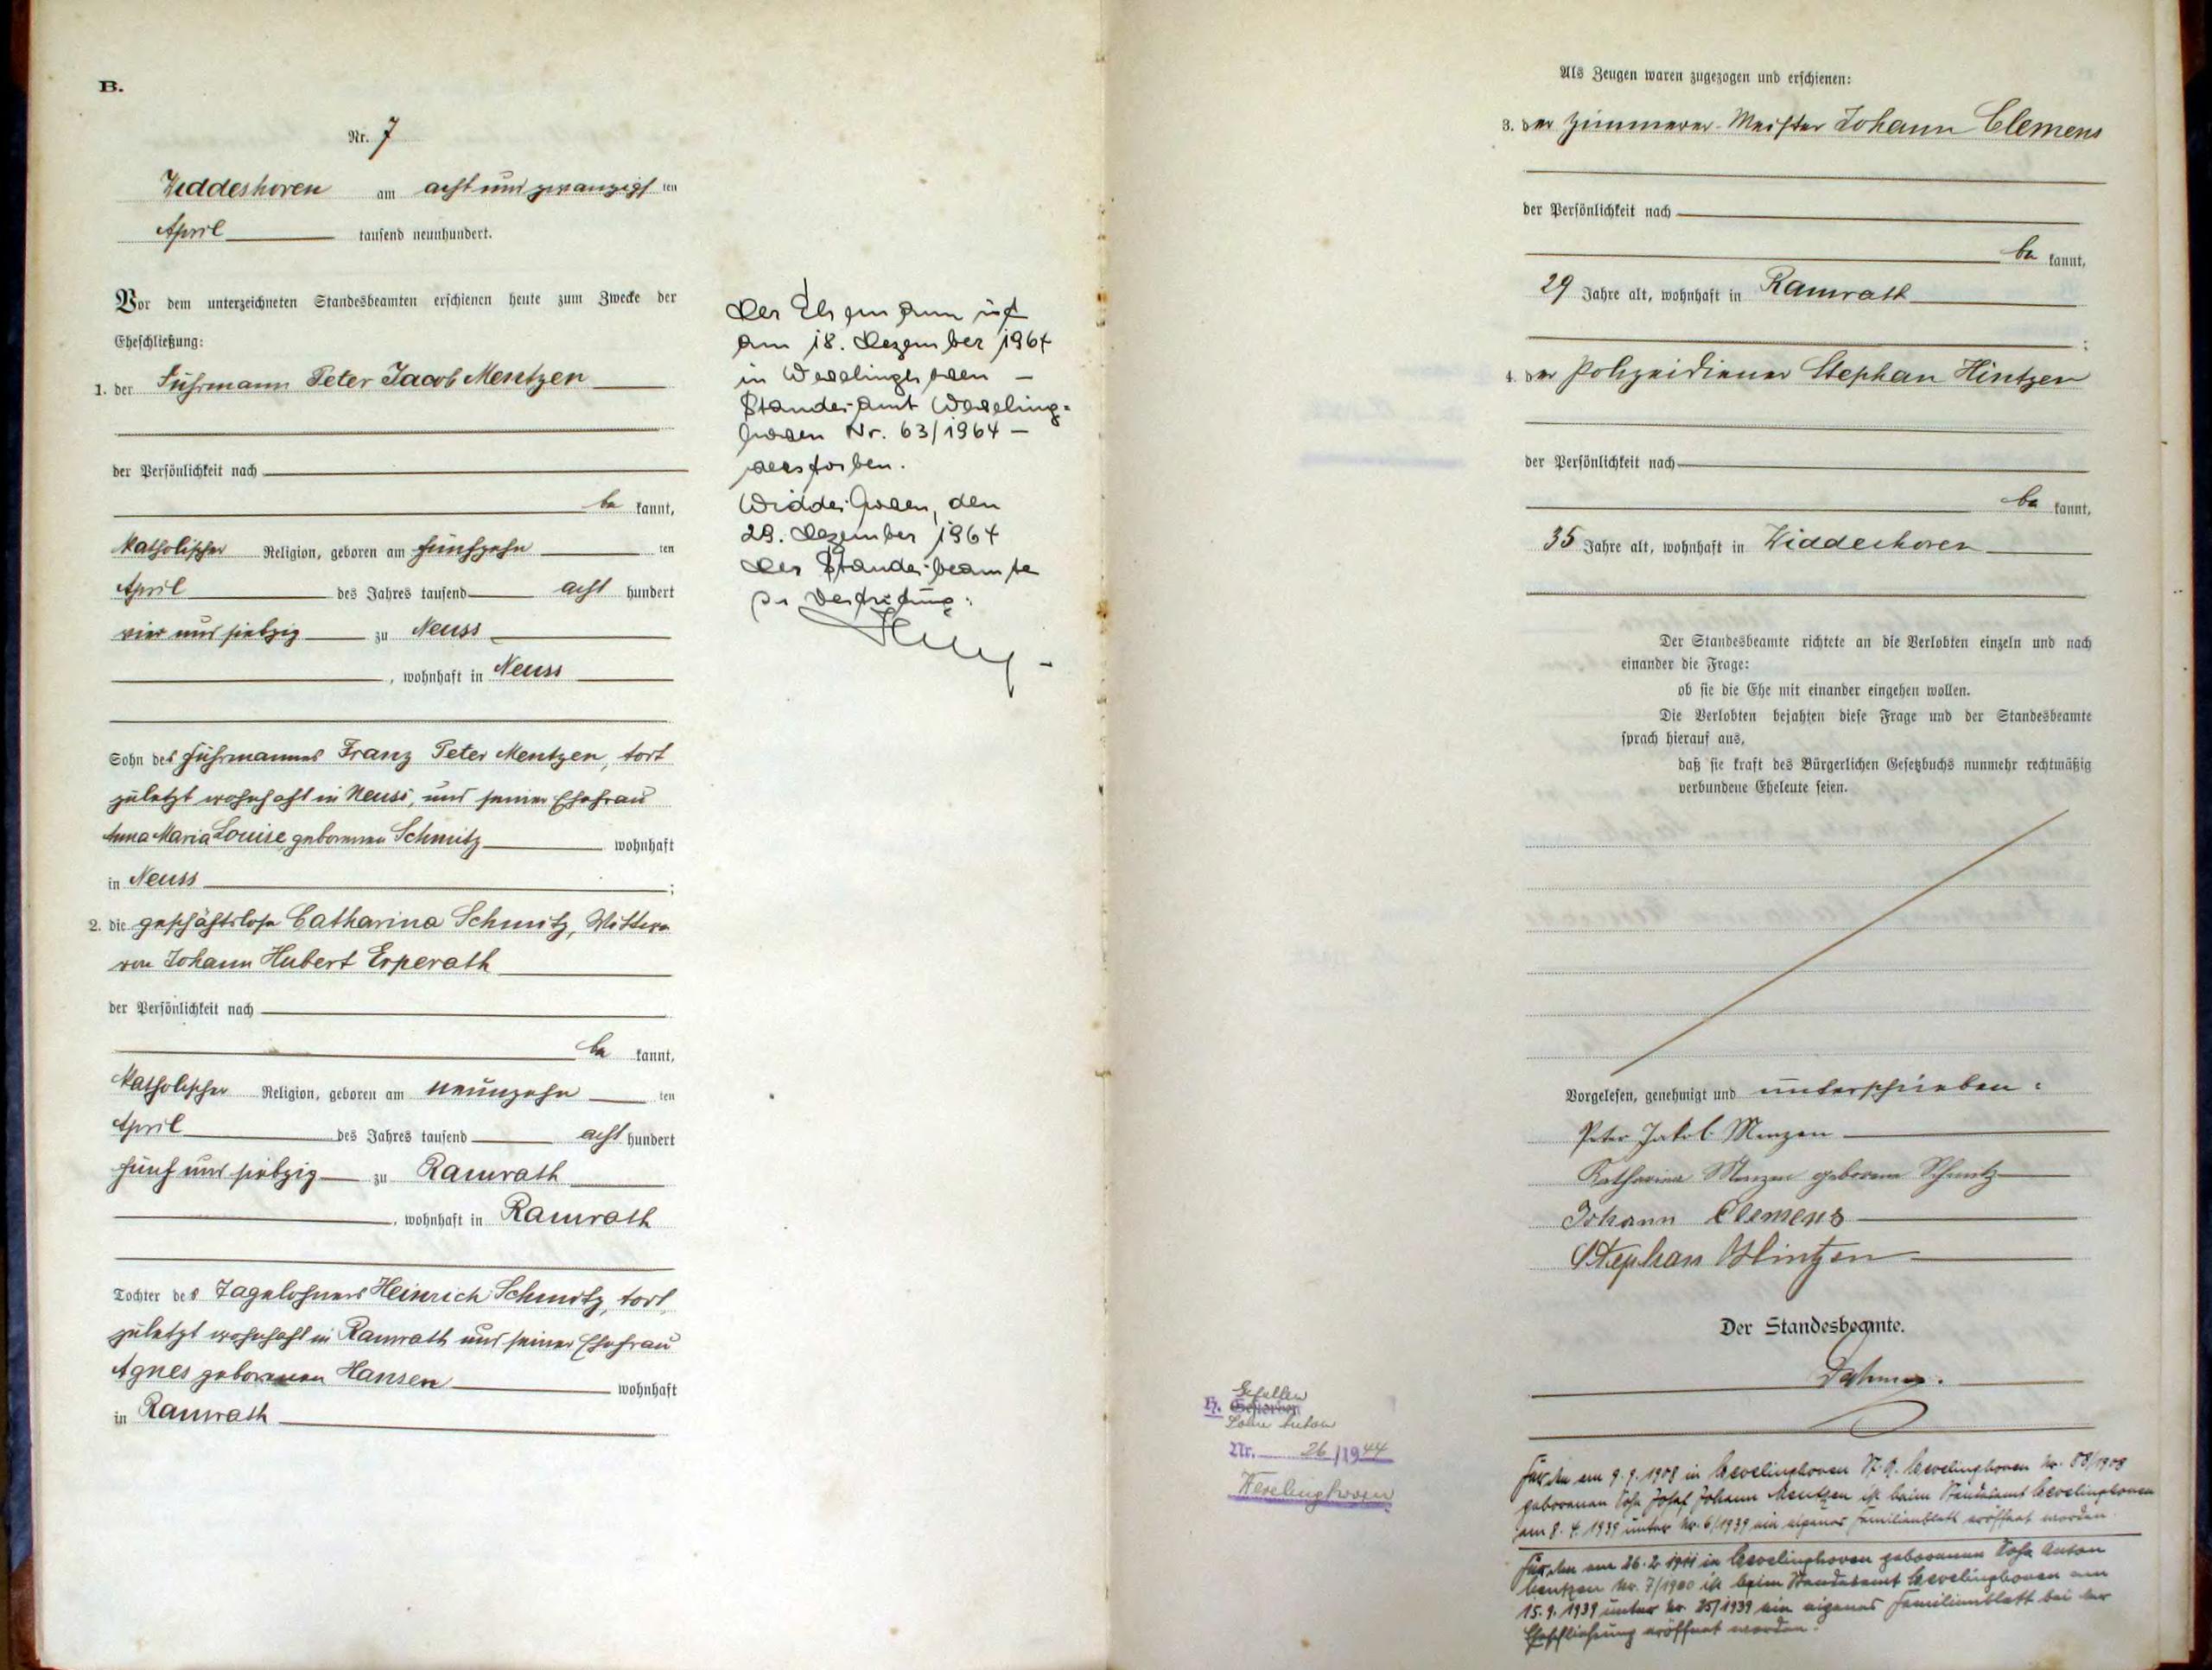 B.
Nr. 7
Widdeshoven am acht und zwanzigsten
April tausend neunhundert.
Vor dem unterzeichneten Standesbeamten erschienen heute zum Zwecke der
Eheschließung:
1. der Fuhrmann Peter Jacob Mentzen
der Persönlichkeit nach
be kannt,
katholischer Religion, geboren am fünfzehn ten
April des Jahres tausend acht hundert
vier und siebzig zu Neuss
, wohnhaft in Neuss
Sohn des Fuhrmannes Franz Peter Mentzen, tort
zuletzt wohnhaft in Neuss, und seiner Ehefrau
Anna Maria Louise geborenen Schmitz wohnhaft
in Neuss ;
2. die geschäftslose Catharina Schmitz, Wittwe
von Johann Hubert Erperath
der Persönlichkeit nach
be kannt,
katholischer Religion, geboren am neunzehn ten
April des Jahres tausend acht hundert
fünf und siebzig zu Ramrath
, wohnhaft in Ramrath
Tochter des Tagelöhners Heinrich Schmitz, tort,
zuletzt wohnhaft in Ramrath und seiner Ehefrau
Agnes geborenen Hansen wohnhaft
in Ramrath
Der Ehemann ist
am 18. Dezember 1964
in Wevelinghoven –
Standesamt Weveling=
hoven Nr. 63/1964 –
verstorben.
Widdeshoven, den
29. Dezember 1964
Der Standesbeamte
In Vertretung:
Als Zeugen waren zugezogen und erschienen:
3. der Zimmerer-Meister Johann Clemens
der Persönlichkeit nach
be kannt,
29 Jahre alt, wohnhaft in Ramrath
;
4. der Polizeidiener Stephan Hintzen
der Persönlichkeit nach
be kannt,
35 Jahre alt, wohnhaft in Widdeshoven
Der Standesbeamte richtete an die Verlobten einzeln und nach
einander die Frage:
ob sie die Ehe mit einander eingehen wollen.
Die Verlobten bejahten diese Frage und der Standesbeamte
sprach hierauf aus,
daß sie kraft des Bürgerlichen Gesetzbuchs nunmehr rechtmäßig
verbundene Eheleute seien.
Vorgelesen, genehmigt und unterschrieben:
Peter Jakob Menzen
Katharina Menzen geborene Schmitz
Johann Clemens
Stephan Hintzen
Der Standesbeamte.
Gefallen
H. Gestorben
Sohn Anton
Nr. 26/1944
Wevelinghoven
Für den am 9.9.1908 in Wevelinghoven St. A. Wevelinghoven Nr. 58/1908
geborenen Sohn Josef Johann Mentzen ist beim Standesamt Wevelinghoven
am 8. 4. 1939 unter Nr. 6/1939 ein eigenes Familienblatt eröffnet worden.
Für den am 26.2.1911 in Wevelinghoven geborenen Sohn Anton
Mentzen Nr. 7/1900 ist beim Standesamt Wevelinghoven am
15.9.1939 unter Nr. 25/1939 ein eigenes Familienblatt bei der
Eheschließung eröffnet worden.